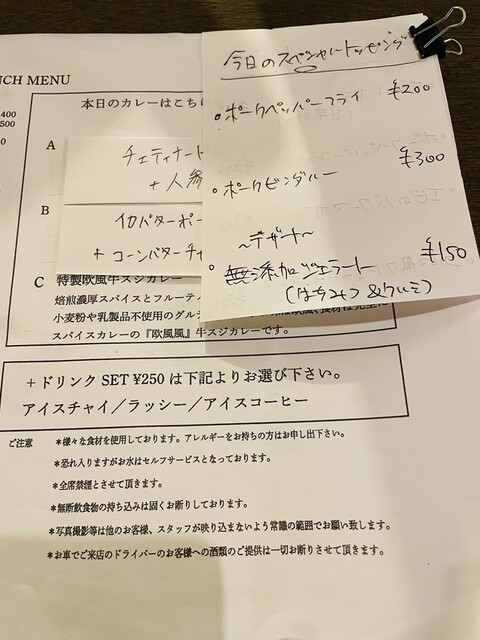 NCH MENU
400
500
本日のカレーはこち
A
チェティナード
+人参
B
イカバターポー
+ コーンバターチャ
C 特製欧風牛スジカレー
焙煎濃厚スパイスとフルーティ
小麦粉や乳製品不使用のグルテ
スパイスカレーの『欧風風』牛スジカレーです。
今日のスペシャルトッピング
ポークペッパーフライ ¥200
ポークビンダルー ¥300
～デザート～
無添加ジェラート ¥150
(はちみつ&クルミ)
+ドリンク SET ¥250 は下記よりお選び下さい。
アイスチャイ／ラッシー／アイスコーヒー
ご注意 *様々な食材を使用しております。アレルギーをお持ちの方はお申し出下さい。
*恐れ入りますがお水はセルフサービスとなっております。
*全席禁煙とさせて頂きます。
*無断飲食物の持ち込みは固くお断りしております。
*写真撮影等は他のお客様、スタッフが映り込まないよう常識の範囲でお願い致します。
*お車でご来店のドライバーのお客様への酒類のご提供は一切お断りさせて頂きます。